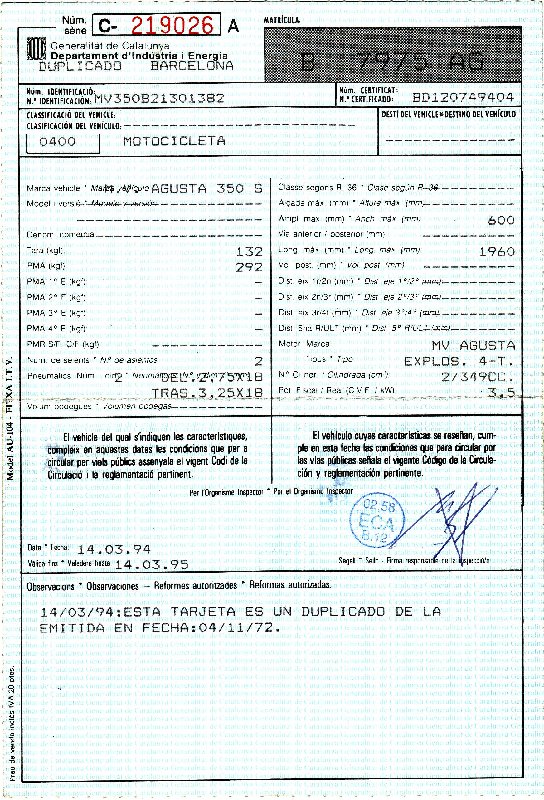 Núm. sèrie C- 219026 A
MATRÍCULA
Generalitat de Catalunya
Departament d'Indústria i Energia
DUPLICADO BARCELONA
B 7975 AG
NÚM. IDENTIFICACIÓ:
N.º IDENTIFICACIÓN: MV350B21301382
NÚM. CERTIFICAT:
N.º CERTIFICADO: BD120749404
CLASSIFICACIÓ DEL VEHICLE:
CLASIFICACIÓN DEL VEHÍCULO:
DESTÍ DEL VEHICLE * DESTINO DEL VEHÍCULO
0400 MOTOCICLETA
Marca vehicle * AGUSTA 350 S
Tara (kg) 132
PMA (kg) 292
PMA 1º E (kg)
PMA 2º E (kg)
PMA 3º E (kg)
PMA 4º E (kg)
Núm. de seients * Nº de asientos 2
Pneumàtics Núm. 2 DEL.2,75X18
TRAS.3,25X18
Volum bodegues * Volumen bodegas
Classe segons R-36 * Clase según R-36
Alçada màx. (mm) * Altura máx. (mm)
Ampl. màx. (mm) * Anch. máx. (mm) 600
Via anterior / posterior (mm)
Long. màx. (mm) * Long. máx. (mm) 1960
Vol. post. (mm) * Vol. post. (mm)
Motor Marca MV AGUSTA
Tipus * Tipo EXPLOS. 4-T.
2/349CC.
3,5
El vehicle del qual s'indiquen les característiques,
compleix en aquestes dates les condicions que per a
circular per viels públics assenyala el vigent Codi de la
Circulació i la reglamentació pertinent.
El vehículo cuyas características se reseñan, cum-
ple en esta fecha las condiciones que para circular por
las vías públicas señala el vigente Código de la Circula-
ción y reglamentación pertinente.
Per l'Organisme Inspector * Por el Organismo Inspector
02.56
ECA
B.12
Data * Fecha: 14.03.94
Vàlida fins * Valedera hasta 14.03.95
Segell * Sello - Firma responsable de la inspección
Observacions * Observaciones – Reformes autoritzades * Reformas autorizadas.
14/03/94:ESTA TARJETA ES UN DUPLICADO DE LA
EMITIDA EN FECHA:04/11/72.
Model AU-104 - FITXA I.T.V.
Preu de venda inclòs IVA 20 ptes.